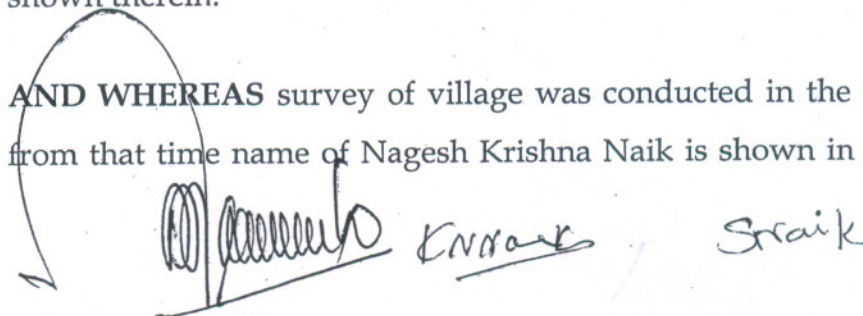 shown therein.
AND WHEREAS survey of village was conducted in the
from that time name of Nagesh Krishna Naik is shown in
KNNaik SNaik